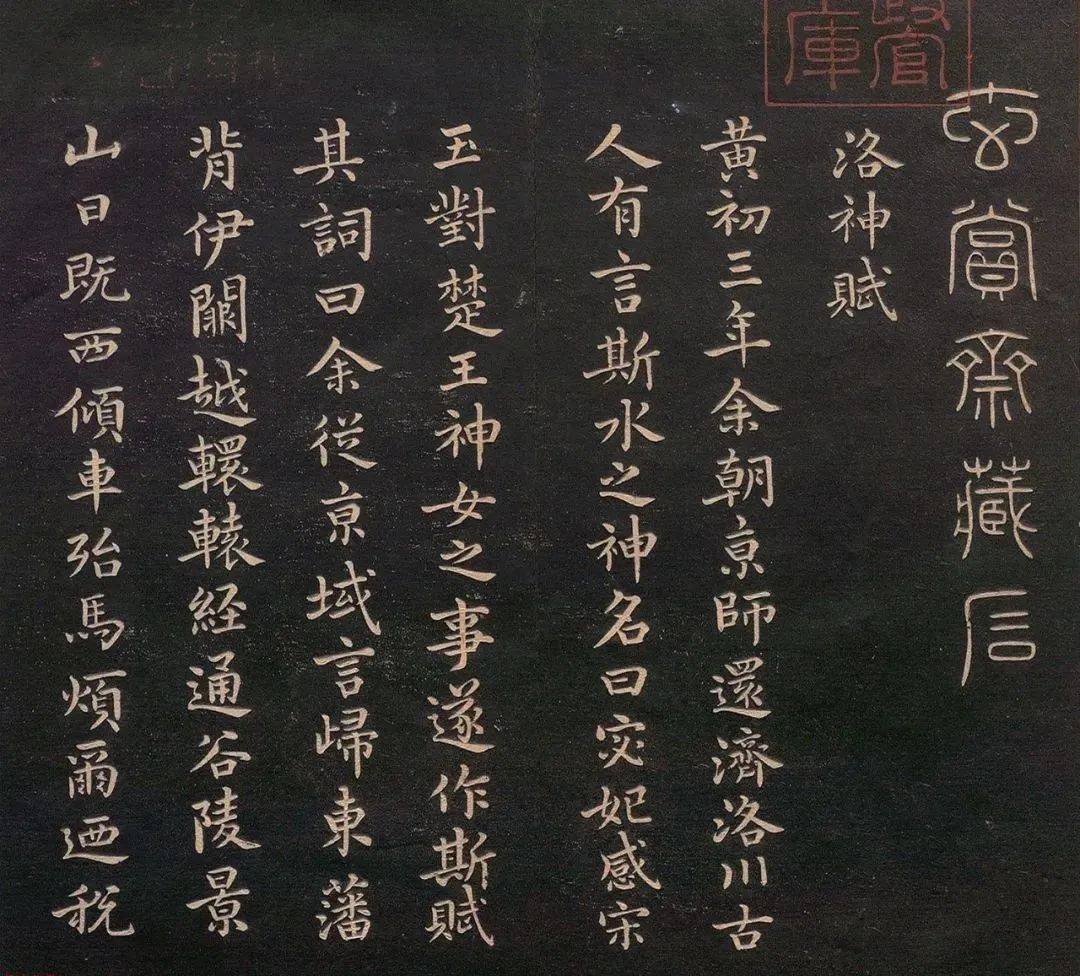 玄賞齋藏石
官
庫
洛神賦
黄初三年余朝亰師還濟洛川古
人有言斯水之神名曰宓妃感宋
玉對楚王神女之事遂作斯賦
其詞曰余從亰域言歸東藩
背伊闕越轘轅経通谷陵景
山日既西傾車殆馬煩爾迺税